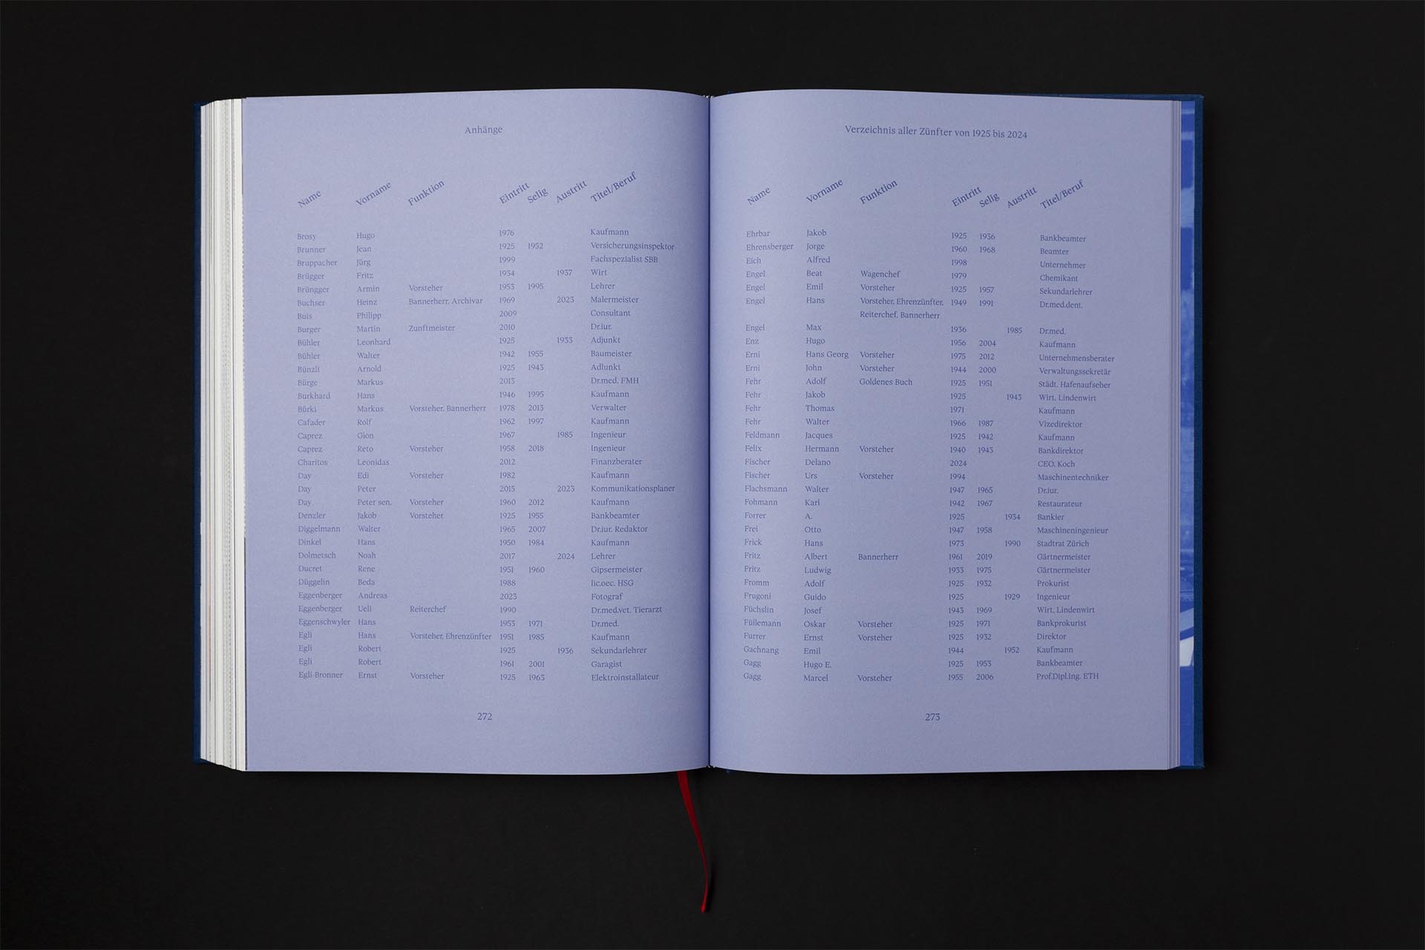 Anhänge
Name Vorname Funktion Eintritt Selig Austritt Titel/Beruf
Brosy Hugo 1976 Kaufmann
Brunner Jean 1925 1952 Versicherungsinspektor
Bruppacher Jürg 1999 Fachspezialist SBB
Brügger Fritz 1934 1937 Wirt
Brüngger Armin Vorsteher 1953 1995 Lehrer
Buchser Heinz Bannerherr, Archivar 1969 2023 Malermeister
Buis Philipp 2009 Consultant
Burger Martin Zunftmeister 2010 Dr.iur.
Bühler Leonhard 1925 1933 Adjunkt
Bühler Walter 1942 1955 Baumeister
Bünzli Arnold 1925 1943 Adjunkt
Bürge Markus 2013 Dr.med. FMH
Bürkhard Hans 1946 1995 Kaufmann
Bürki Markus Vorsteher, Bannerherr 1978 2013 Verwalter
Cafader Rolf 1962 1997 Kaufmann
Caprez Gion 1967 1985 Ingenieur
Caprez Reto Vorsteher 1958 2018 Ingenieur
Charitos Leonidas 2012 Finanzberater
Day Edi Vorsteher 1982 Kaufmann
Day Peter 2015 2023 Kommunikationsplaner
Day Peter sen. Vorsteher 1960 2012 Kaufmann
Denzler Jakob Vorsteher 1925 1955 Bankbeamter
Diggelmann Walter 1965 2007 Dr.iur. Redaktor
Dinkel Hans 1950 1984 Kaufmann
Dolmetsch Noah 2017 2024 Lehrer
Ducret Rene 1951 1960 Gipsermeister
Düggelin Beda 1988 lic.oec. HSG
Eggenberger Andreas 2023 Fotograf
Eggenberger Ueli Reiterchef 1990 Dr.med.vet. Tierarzt
Eggenschwyler Hans 1953 1971 Dr.med.
Egli Hans Vorsteher, Ehrenzünfter 1951 1985 Kaufmann
Egli Robert 1925 1936 Sekundarlehrer
Egli Robert 1961 2001 Garagist
Egli-Bronner Ernst Vorsteher 1925 1963 Elektroinstallateur
272
Verzeichnis aller Zünfter von 1925 bis 2024
Name Vorname Funktion Eintritt Selig Austritt Titel/Beruf
Ehrbar Jakob 1925 1936 Bankbeamter
Ehrensberger Jorge 1960 1968 Beamter
Eich Alfred 1998 Unternehmer
Engel Beat Wagenchef 1979 Chemikant
Engel Emil Vorsteher 1925 1957 Sekundarlehrer
Engel Hans Vorsteher, Ehrenzünfter, 1949 1991 Dr.med.dent.
Reiterchef, Bannerherr
Engel Max 1936 1985 Dr.med.
Enz Hugo 1956 2004 Kaufmann
Erni Hans Georg Vorsteher 1975 2012 Unternehmensberater
Erni John Vorsteher 1944 2000 Verwaltungssekretär
Fehr Adolf Goldenes Buch 1925 1951 Städt. Hafenaufseher
Fehr Jakob 1925 1943 Wirt, Lindenwirt
Fehr Thomas 1971 Kaufmann
Fehr Walter 1966 1987 Vizedirektor
Feldmann Jacques 1925 1942 Kaufmann
Felix Hermann Vorsteher 1940 1943 Bankdirektor
Fischer Delano 2024 CEO, Koch
Fischer Urs Vorsteher 1994 Maschinentechniker
Flachsmann Walter 1947 1965 Dr.iur.
Fohmann Karl 1942 1967 Restaurateur
Forrer A. 1925 1934 Bankier
Frei Otto 1947 1958 Maschineningenieur
Frick Hans 1973 1990 Stadtrat Zürich
Fritz Albert Bannerherr 1961 2019 Gärtnermeister
Fritz Ludwig 1933 1975 Gärtnermeister
Fromm Adolf 1925 1932 Prokurist
Frugoni Guido 1925 1929 Ingenieur
Füchslin Josef 1943 1969 Wirt, Lindenwirt
Füllemann Oskar Vorsteher 1925 1971 Bankprokurist
Furrer Ernst Vorsteher 1925 1932 Direktor
Gachnang Emil 1944 1952 Kaufmann
Gagg Hugo E. 1925 1953 Bankbeamter
Gagg Marcel Vorsteher 1955 2006 Prof.Dipl.Ing. ETH
273